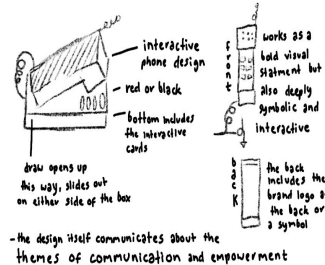 interactive
phone design
red or black
bottom includes
the interactive
cards
draw opens up
this way, slides out
on either side of the box
front
works as a
bold visual
statment but
also deeply
symbolic and
interactive
back
the back
includes the
brand logo a
the back or
a symbol
-the design itself communicates about the
themes of communication and empowerment